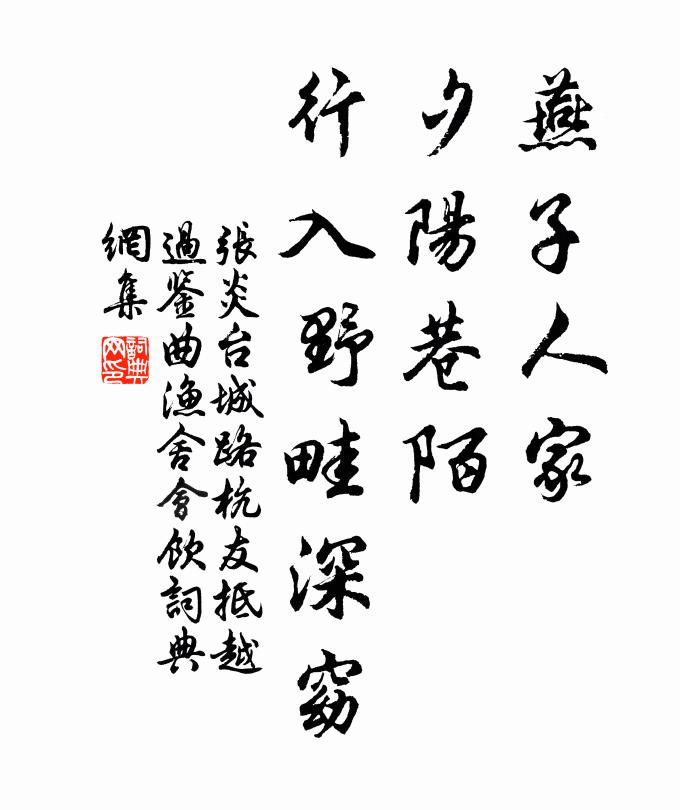 燕子人家
夕陽巷陌
行入野畦深窈
張炎台城路杭友抵越
過鉴曲漁舍會飲詞典
網集
詞典
网印